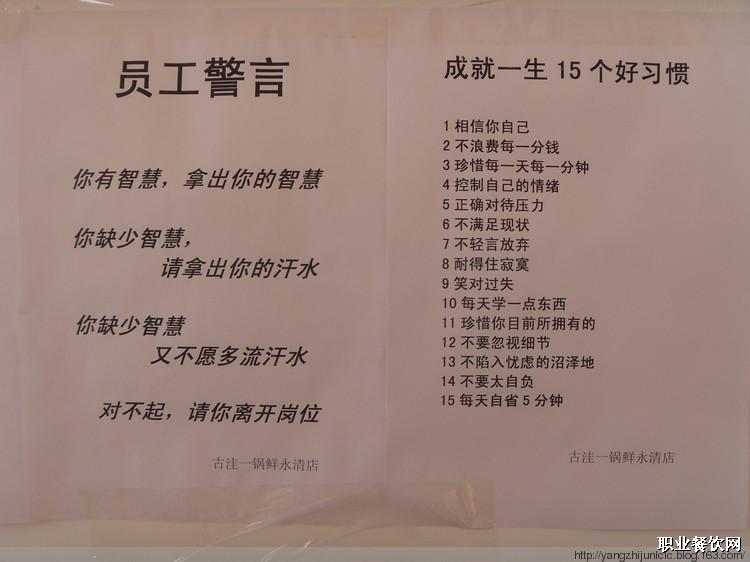 员工警言
你有智慧，拿出你的智慧
你缺少智慧，
请拿出你的汗水
你缺少智慧
又不愿多流汗水
对不起，请你离开岗位
古洼一锅鲜永清店
成就一生 15 个好习惯
1 相信你自己
2 不浪费每一分钱
3 珍惜每一天每一分钟
4 控制自己的情绪
5 正确对待压力
6 不满足现状
7 不轻言放弃
8 耐得住寂寞
9 笑对过失
10 每天学一点东西
11 珍惜你目前所拥有的
12 不要忽视细节
13 不陷入忧虑的沼泽地
14 不要太自负
15 每天自省 5 分钟
古洼一锅鲜永清店
职业餐饮网
http://yangzhijunlclc.blog.163.com/